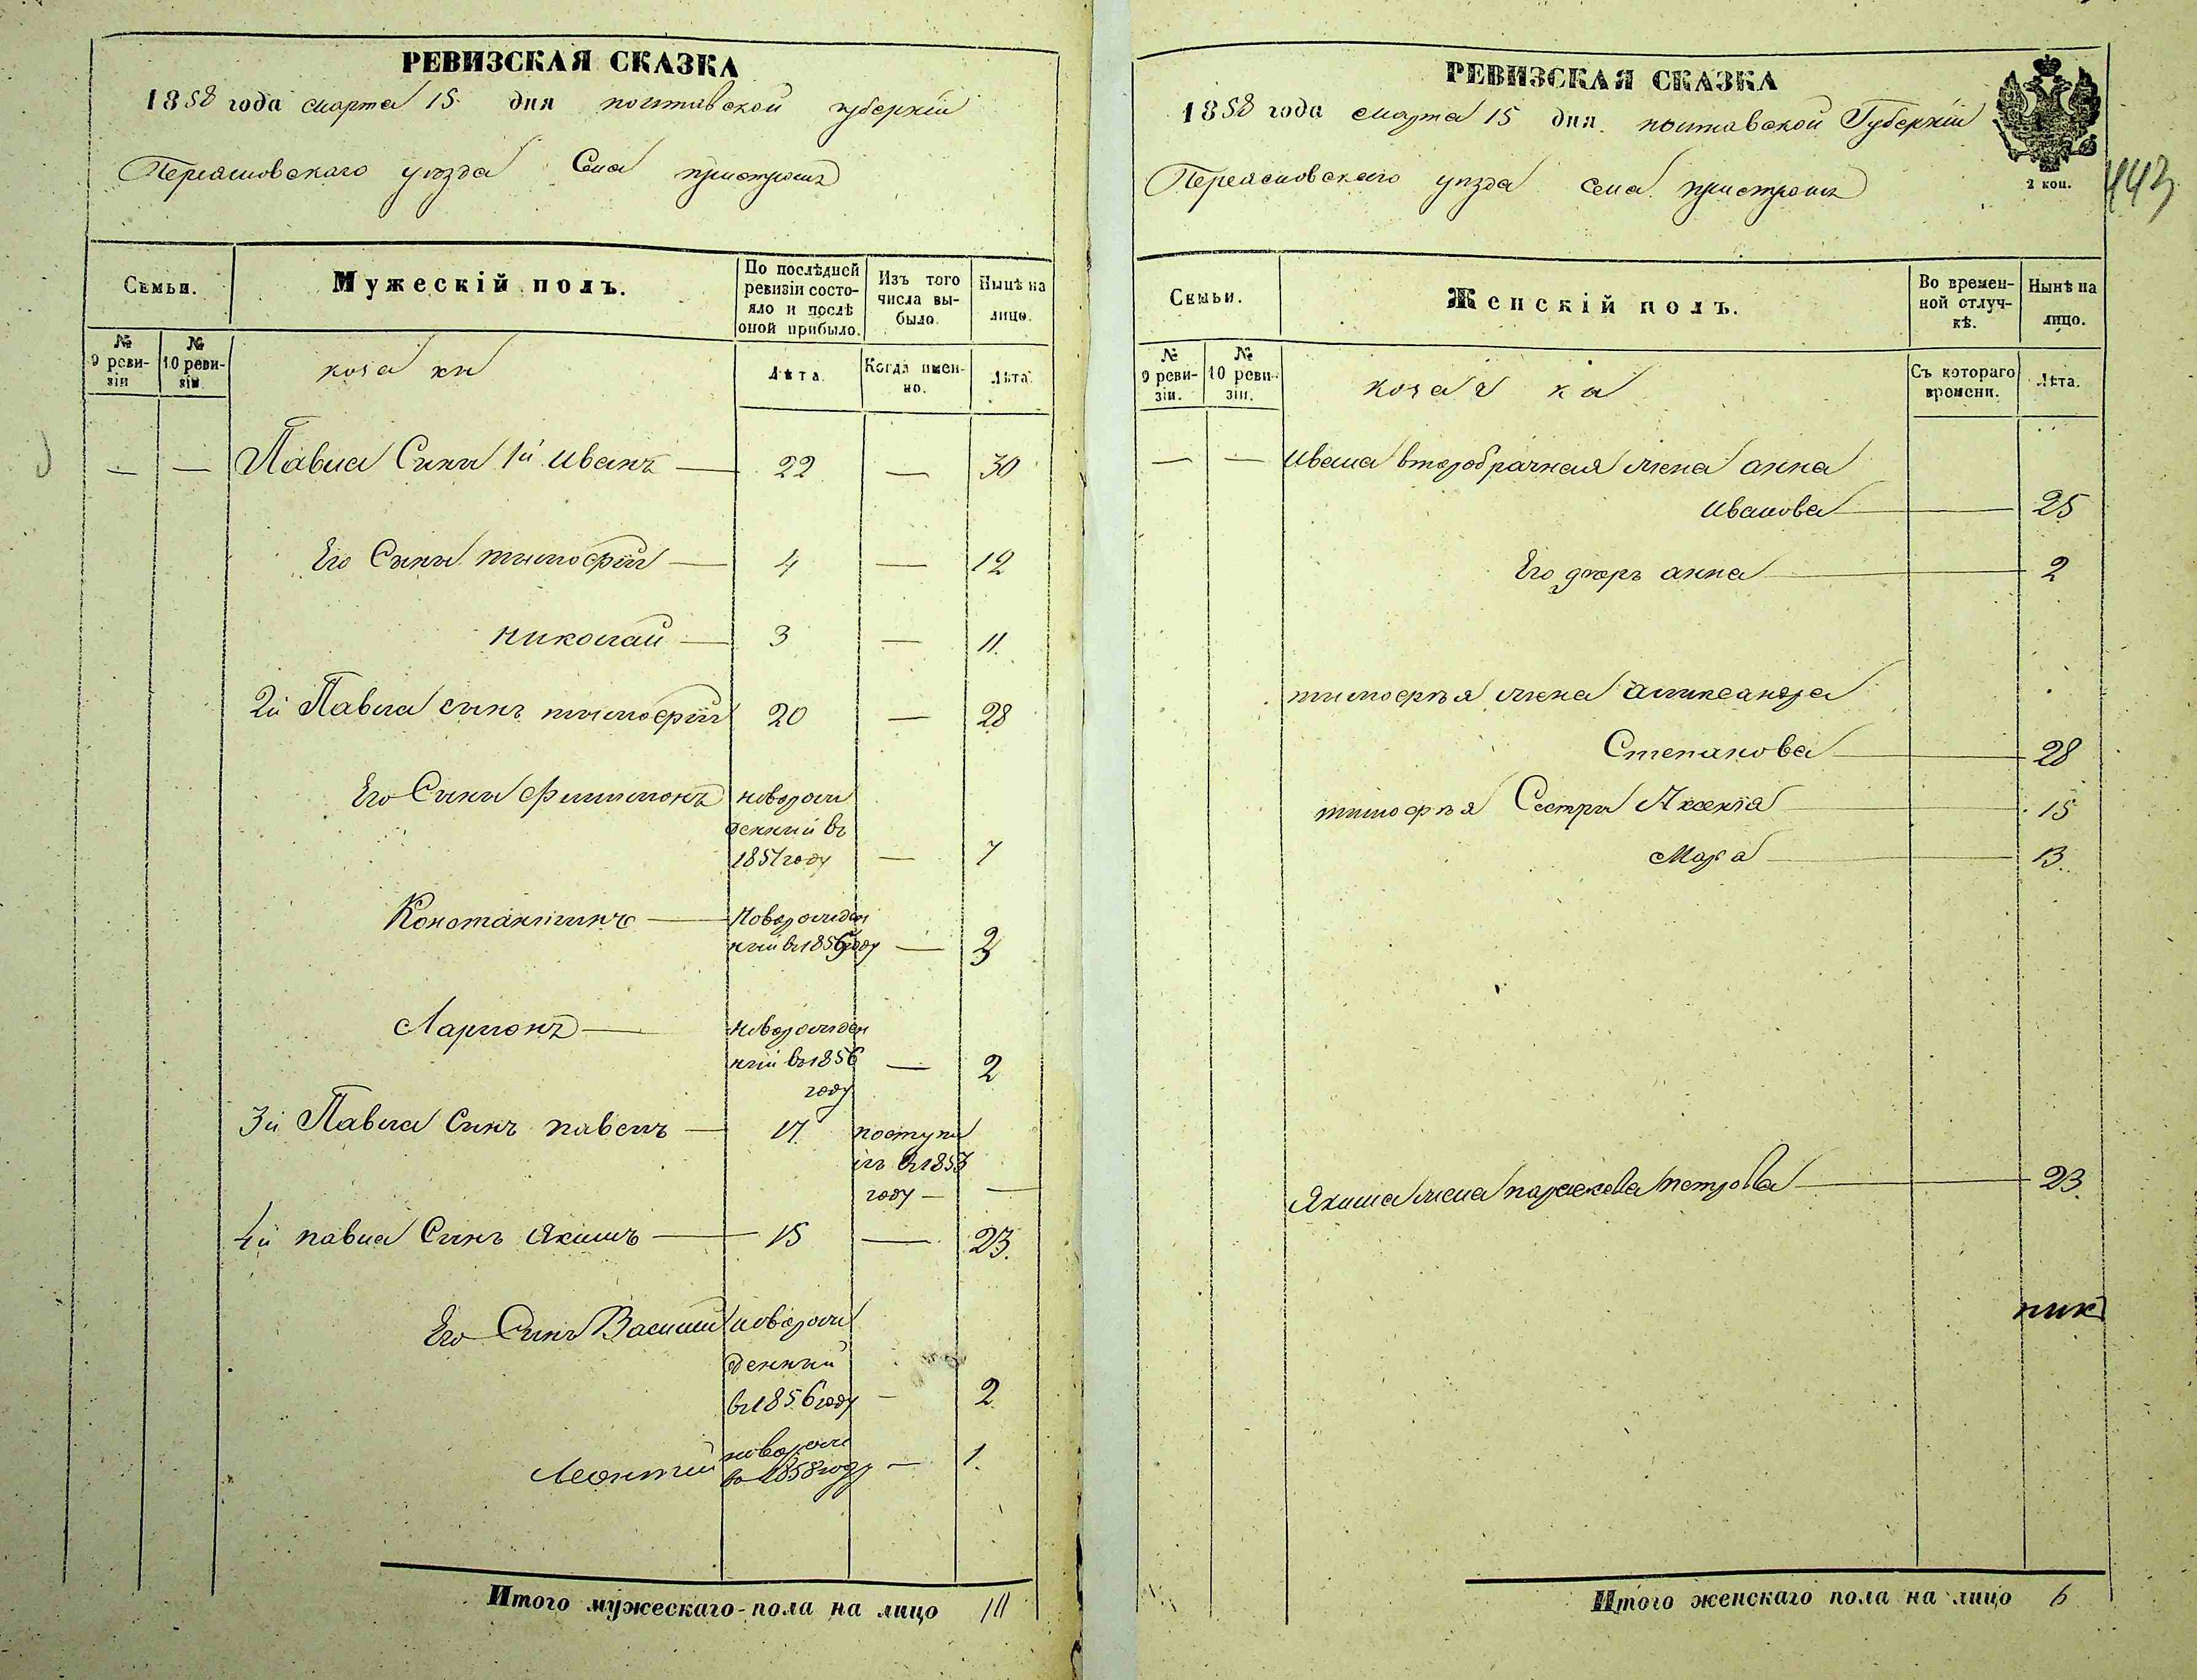 РЕВИЗСКАЯ СКАЗКА
1858 года марта 15 дня полтавской губернїи
Переясловскаго уѣзда Села пристромъ
Семьи.
Мужескій полъ.
По послѣдней ревизіи состо-
яло и послѣ оной прибыло.
Изъ того числа вы-
было.
Нынѣ на лицо.
№ 9 реви-
зіи
№ 10 реви-
зіи.
козаки
Лѣта.
Когда имен-
но.
Лѣта.
— — Павла Сини 1й иванъ — 22 — 30
Его Сыни тимофїй — 4 — 12
николай — 3 — 11.
2й Павла синъ тимофїй 20 — 28
Его Сыни Филимонъ новорож
денний въ
1851 году — 7
Константинъ — Новорожден
ний въ 1856 году — 2
Ларионъ — новорожден
ний въ 1856 — 2
году
3й Павла Синъ павелъ — 17. поступи
лъ въ 1853
году — —
4й павла Синъ Якимъ — 15 — 23.
Его Синъ Василий новорож
денний
въ 1856 году — 2
Леонтий новорож
въ 1858 году — 1.
Итого мужескаго пола на лицо 11
РЕВИЗСКАЯ СКАЗКА
1858 года марта 15 дня полтавской Губернїи
Переясловскаго уѣзда села пристромъ
2 коп.
443
Семьи.
Женскій полъ.
Во времен-
ной отлуч-
кѣ.
Нынѣ на лицо.
№ 9 реви-
зіи.
№ 10 реви-
зіи.
козачка
Съ котораго времени.
Лѣта.
— — Ивана второбрачная жена анна
Иванова — 25
Его дочръ анна — 2
тимофѣя жена александра
Степанова — 28
тимофѣя Сестры Аксенїя — 15
Марфа — 13.
Якима жена параскева петрова — 23.
Итого женскаго пола на лицо 6